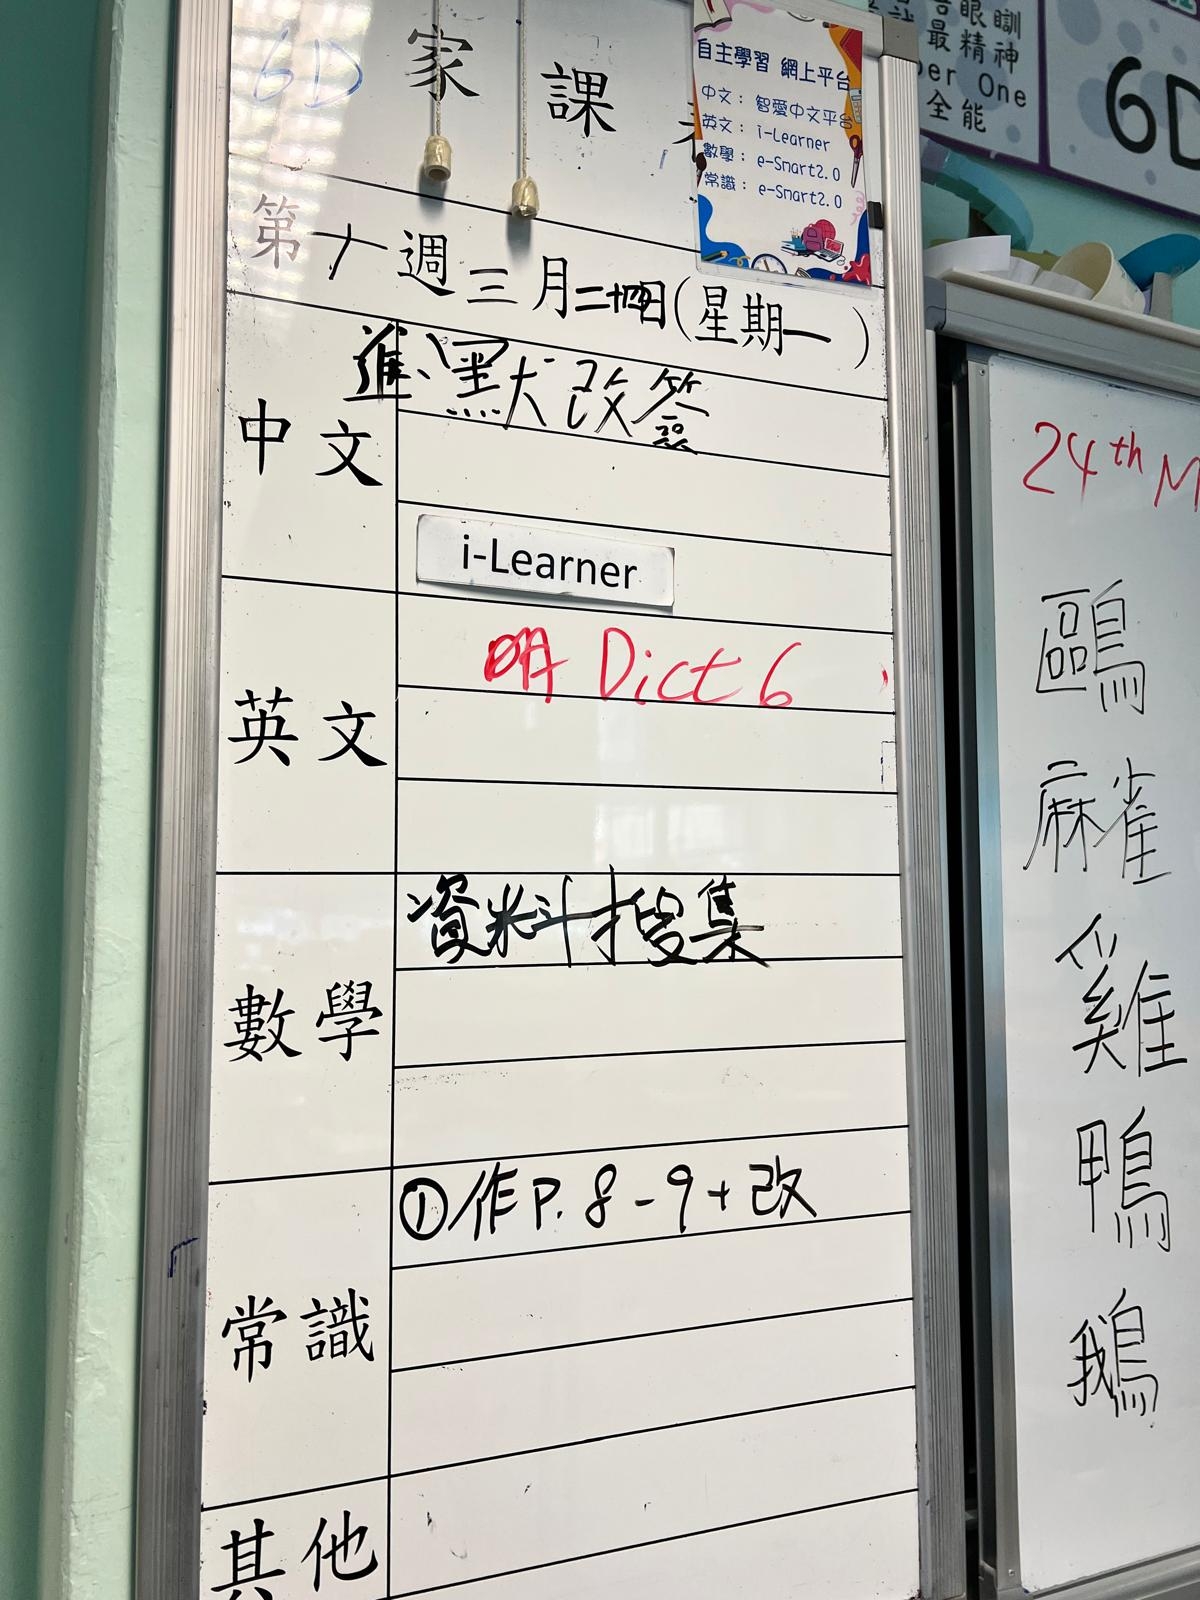 6D 家課
自主學習 網上平台
中文： 智愛中文平台
英文： i-Learner
數學： e-Smart2.0
常識： e-Smart2.0
第十週三月二十四日(星期一)
中文
進、默改簽
i-Learner
英文
明 Dict 6
數學
資料搜集
常識
①作P.8-9+改
其他
眼瞓
最精神
One
全能
6D
24th M
鷗
麻雀
雞
鴨
鵝